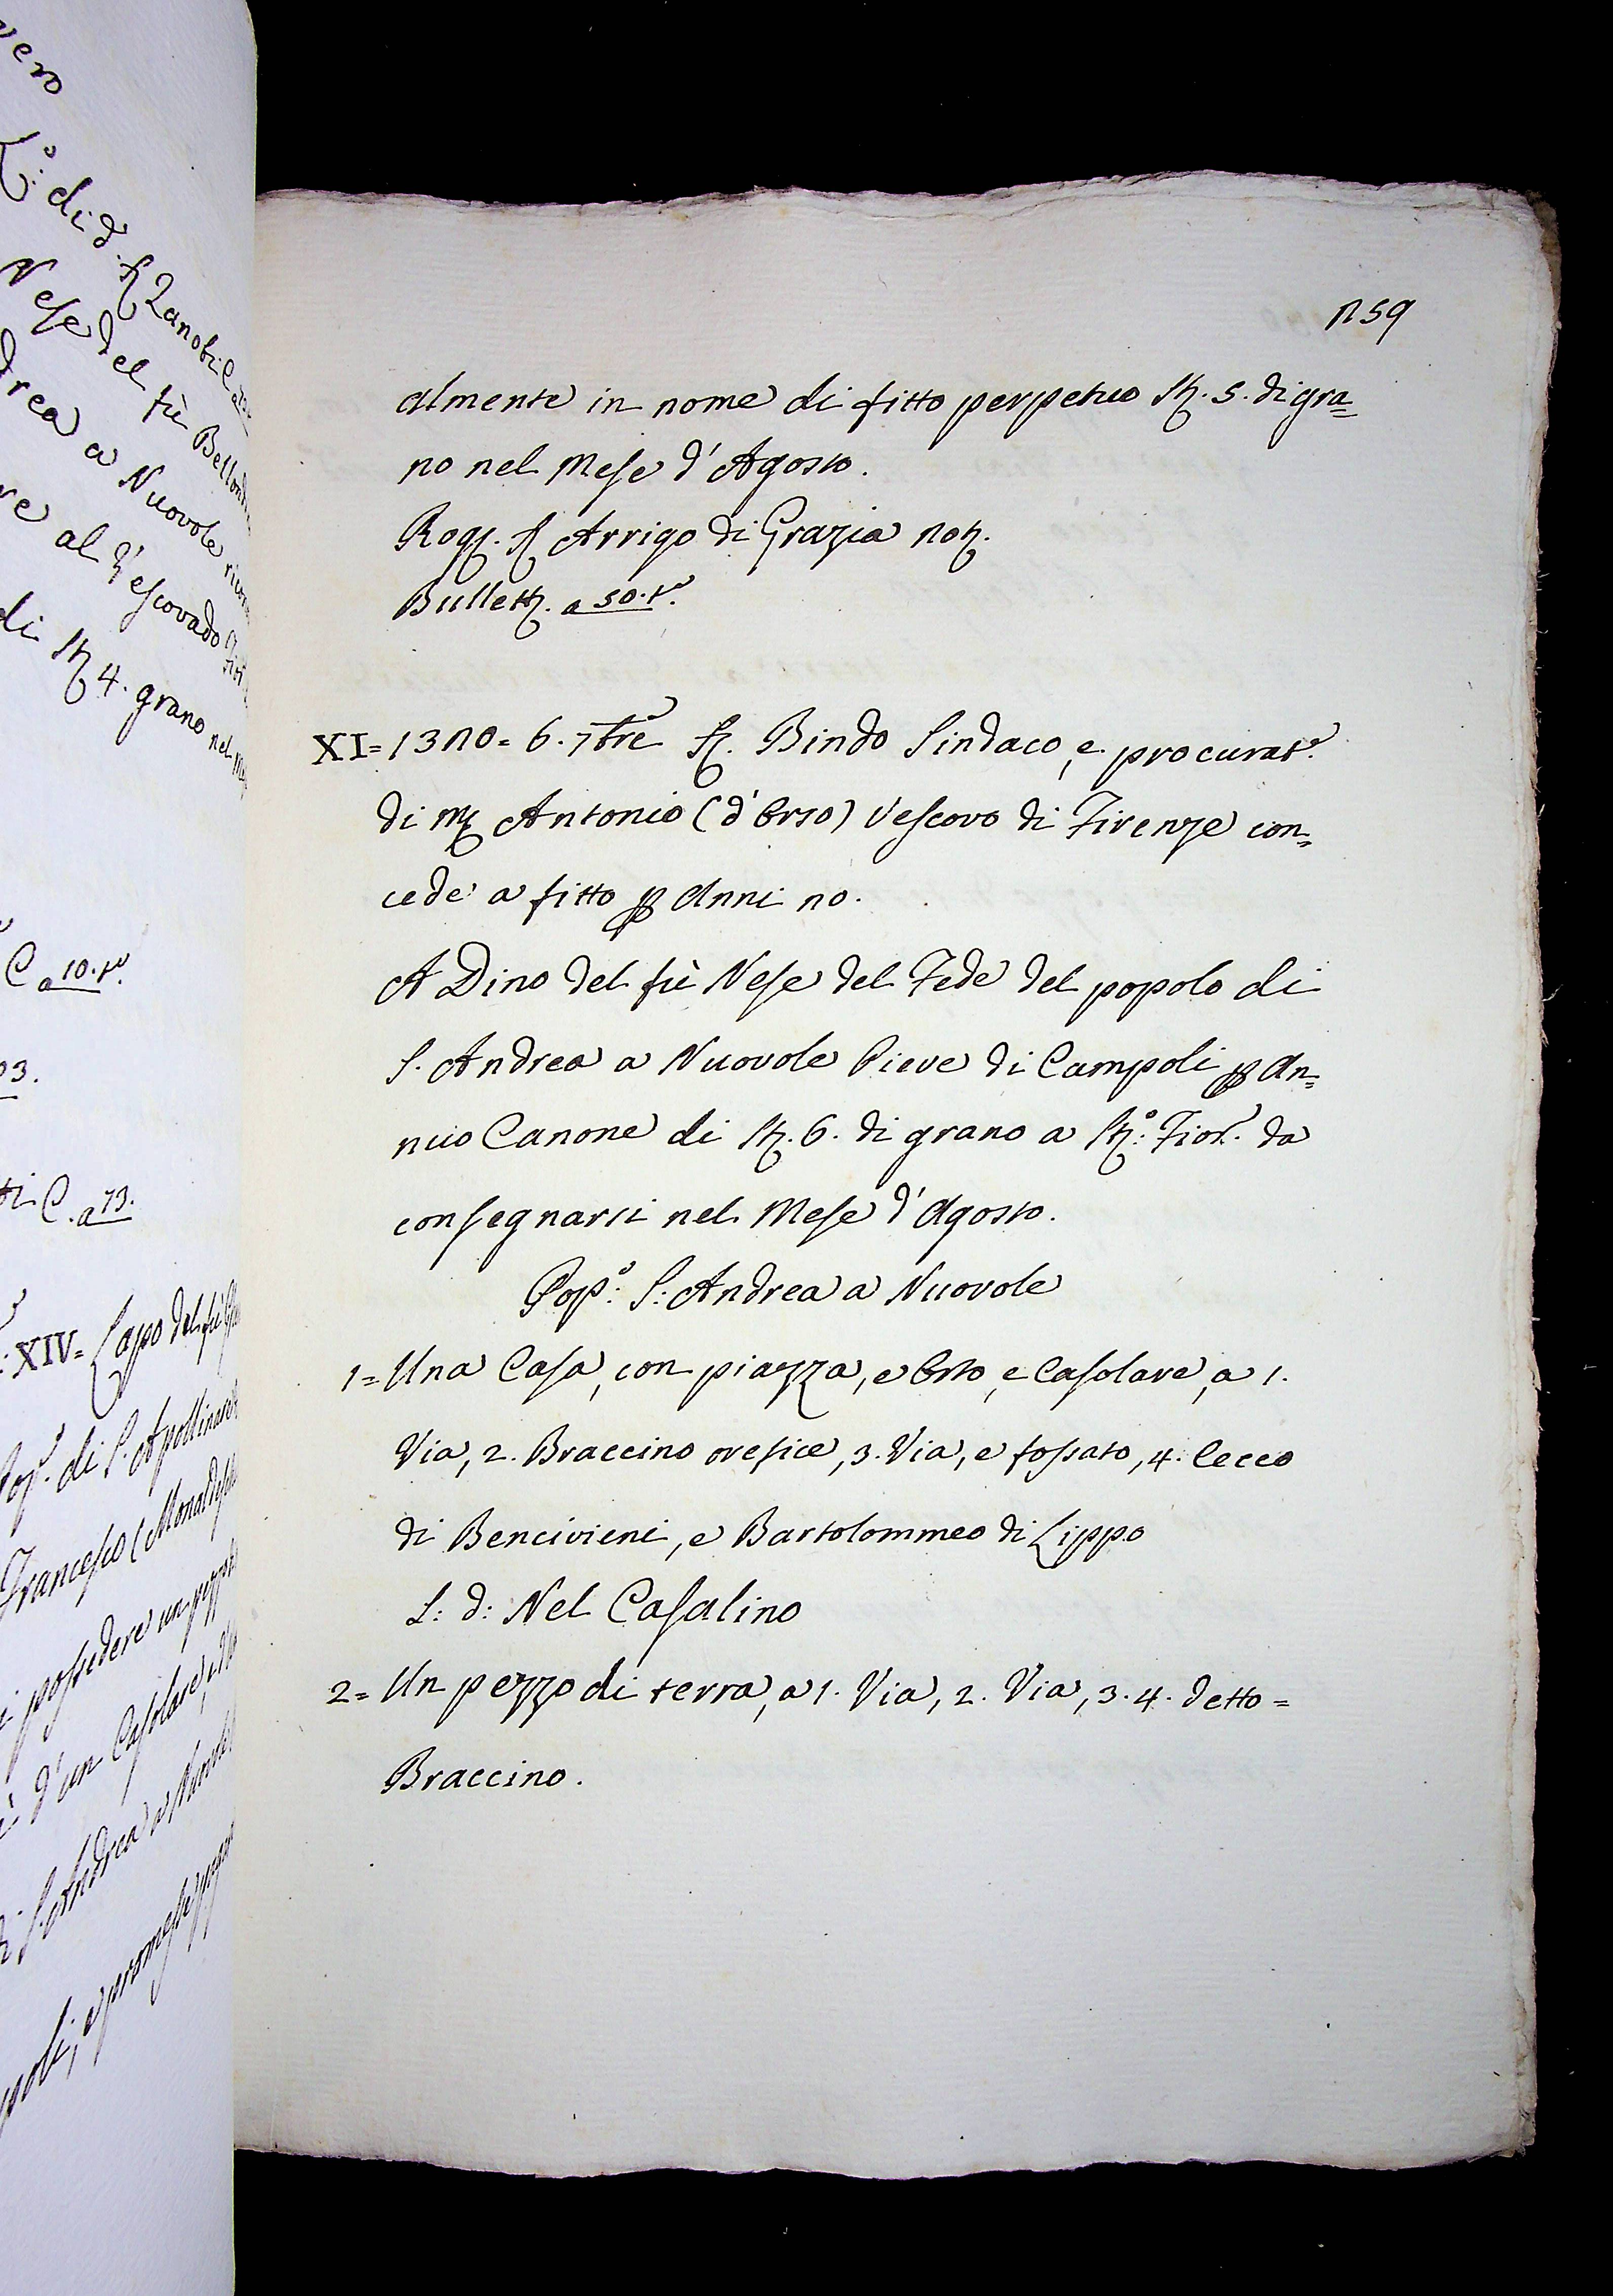 vero
L.º di d. S. Zanobi C a
Nese del fù Bellond
drea a Nuovole
re al Vescovado
di St. 4. grano nel M
C a 10. tº.
03.
tti C. a 73.
XIV = Lapo del fù
Pop.º di S. Apollinare
Francesco (Monaldes
i possedere un pezzo
è d'un Casolare, e d'
di S. Andrea a Nuovole
poli, e promesse pagar
259
almente in nome di fitto perpetuo St. 5. di gra=
no nel Mese d'Agosto.
Rog. S. Arrigo di Grazia not.
Bullett. a 50. tº.
XI = 1320 = 6. 7bre S. Bindo Sindaco, e procurat.e
di M. Antonio (d'Orso) Vescovo di Firenze con=
cede a fitto p Anni 20.
A Dino del fù Nese del Fede del popolo di
S. Andrea a Nuovole Pieve di Campoli p An=
nuo Canone di St. 6. di grano a St.º: Fior.º da
consegnarsi nel Mese d'Agosto.
Pop.º: S: Andrea a Nuovole
1= Una Casa, con piazza, e Orto, e Casolare, a 1.
Via, 2. Braccino orefice, 3. Via, e fossato, 4. Cecco
di Bencivieni, e Bartolommeo di Lippo
L: d: Nel Casalino
2= Un pezzo di terra, a 1. Via, 2. Via, 3. 4. detto=
Braccino.